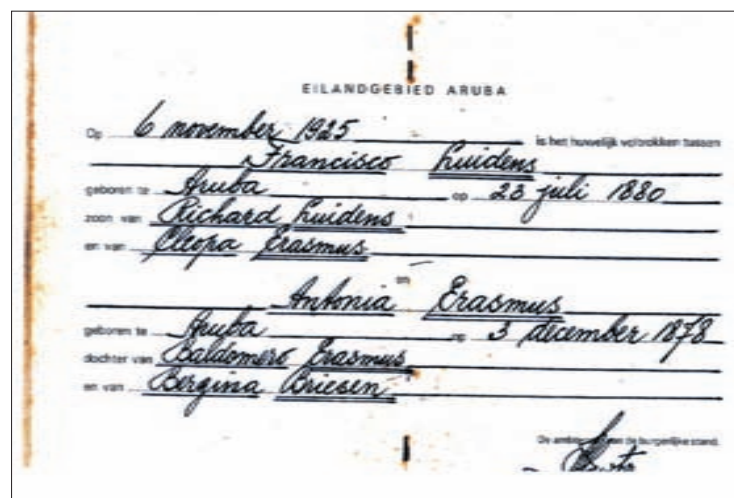 EILANDGEBIED ARUBA
Op 6 november 1925 is het huwelijk voltrokken tussen
Francisco Luidens
geboren te Aruba op 23 juli 1880
zoon van Richard Luidens
en van Cleopa Erasmus
en
Antonia Erasmus
geboren te Aruba op 3 december 1878
dochter van Baldomero Erasmus
en van Bergina Briesen
De van de burgerlijke stand,